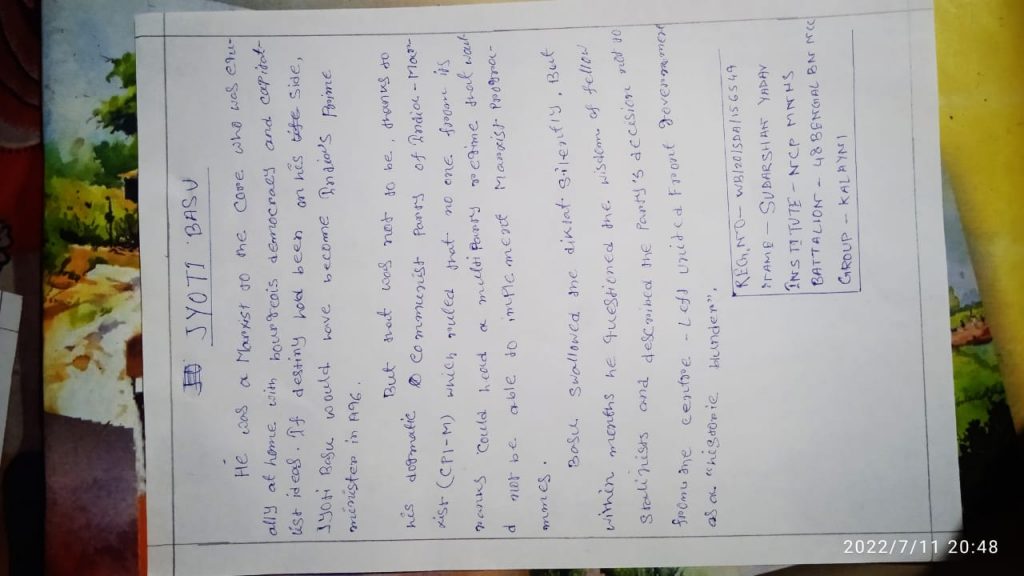 JYOTI BASU
He was a Marxst to the Core who was equ-
ally at home with bourgeois democracy and capital-
ist ideas. If destiny had been on his side,
JYoti Basu would have become India's Prime
minister in 1996.
But that was not to be, thanks to
his dogmatic Communist Party of India-Mar-
xist (CPI-M) which ruled that no one from its
ranks could head a multiParty regime that woul-
d not be able to implement Marxist Progra-
mmes.
Basu swallowed the diktat silently. But
within months he questioned the wisdom of fellow
Stalinists and described the Party's decision not to
from the centre - Left united Front government
as a "historic blunder".
REG, NO - WB/20/SDA/156549
NAME - SUDARSHAN YADAV
INSTITUTE - NCP MNHS
BATTALION - 48 BENGAL BN NCC
GROUP - KALAYNI
2022/7/11 20:48